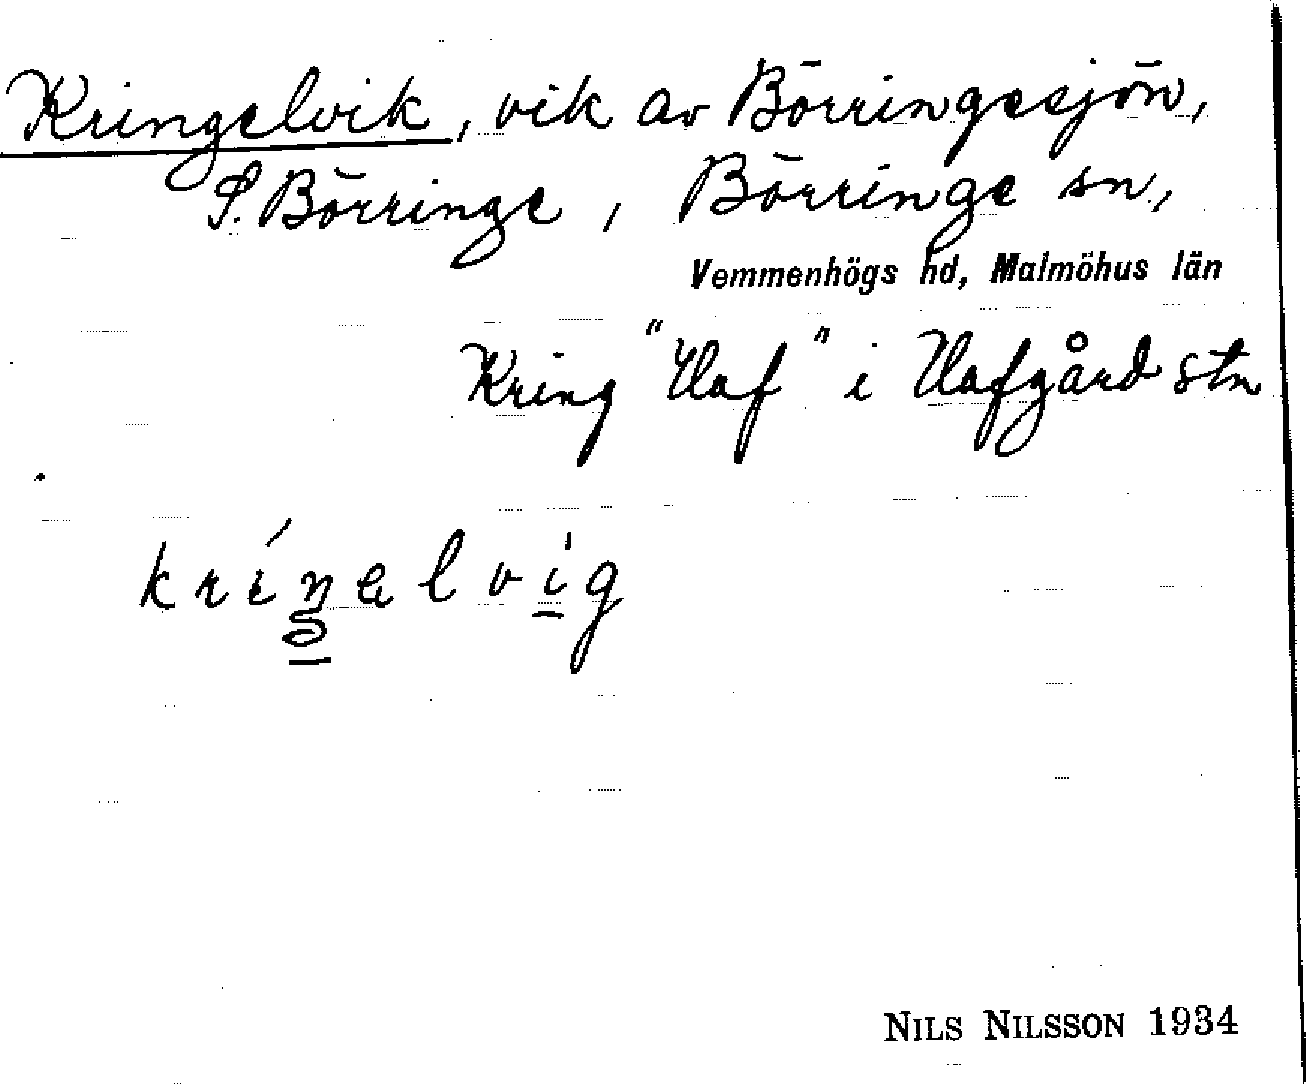 Kringelvik, vik av Börringesjön,
S. Börringe, Börringe sn,
Vemmenhögs hd, Malmöhus län
Kring "Haf" i Hafgård stn
kríŋəlvig
NILS NILSSON 1934